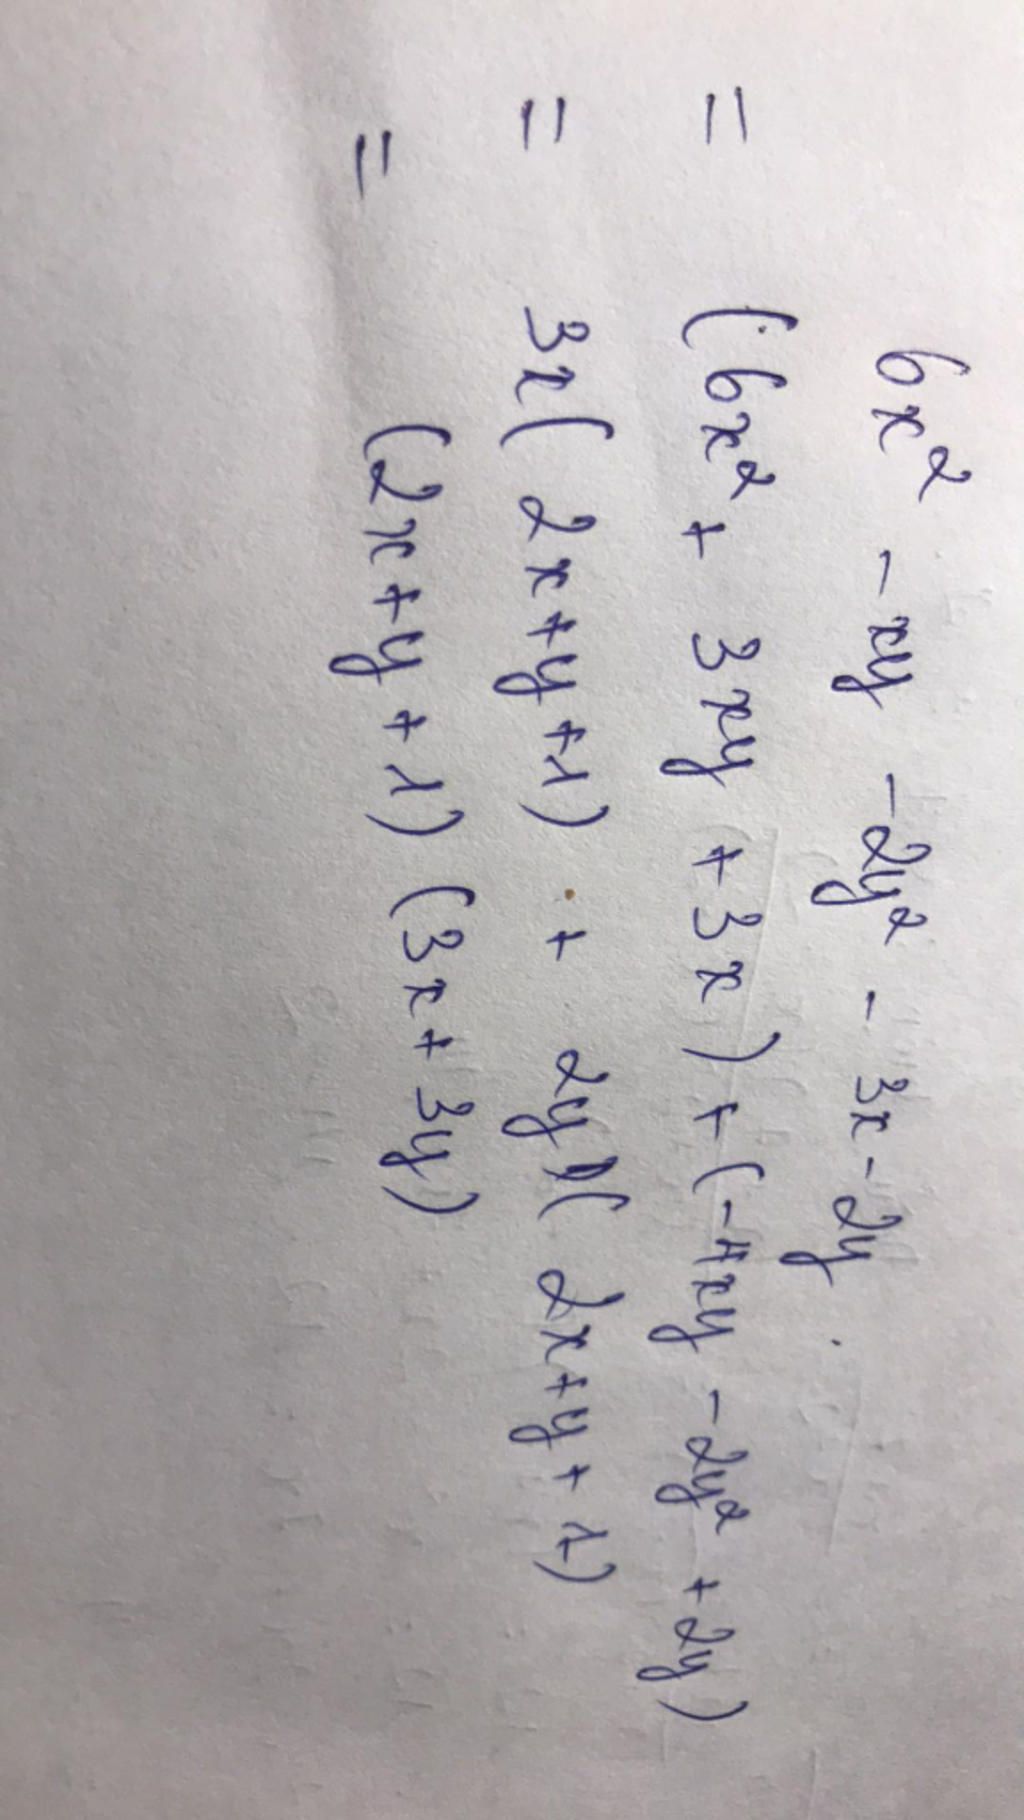 6x² - xy - 2y² - 3x - 2y
= (6x² + 3xy + 3x) + (-4xy - 2y² + 2y)
= 3x( 2x+y+1) + 2y( 2x+y+1)
= (2x+y+1) (3x+3y)